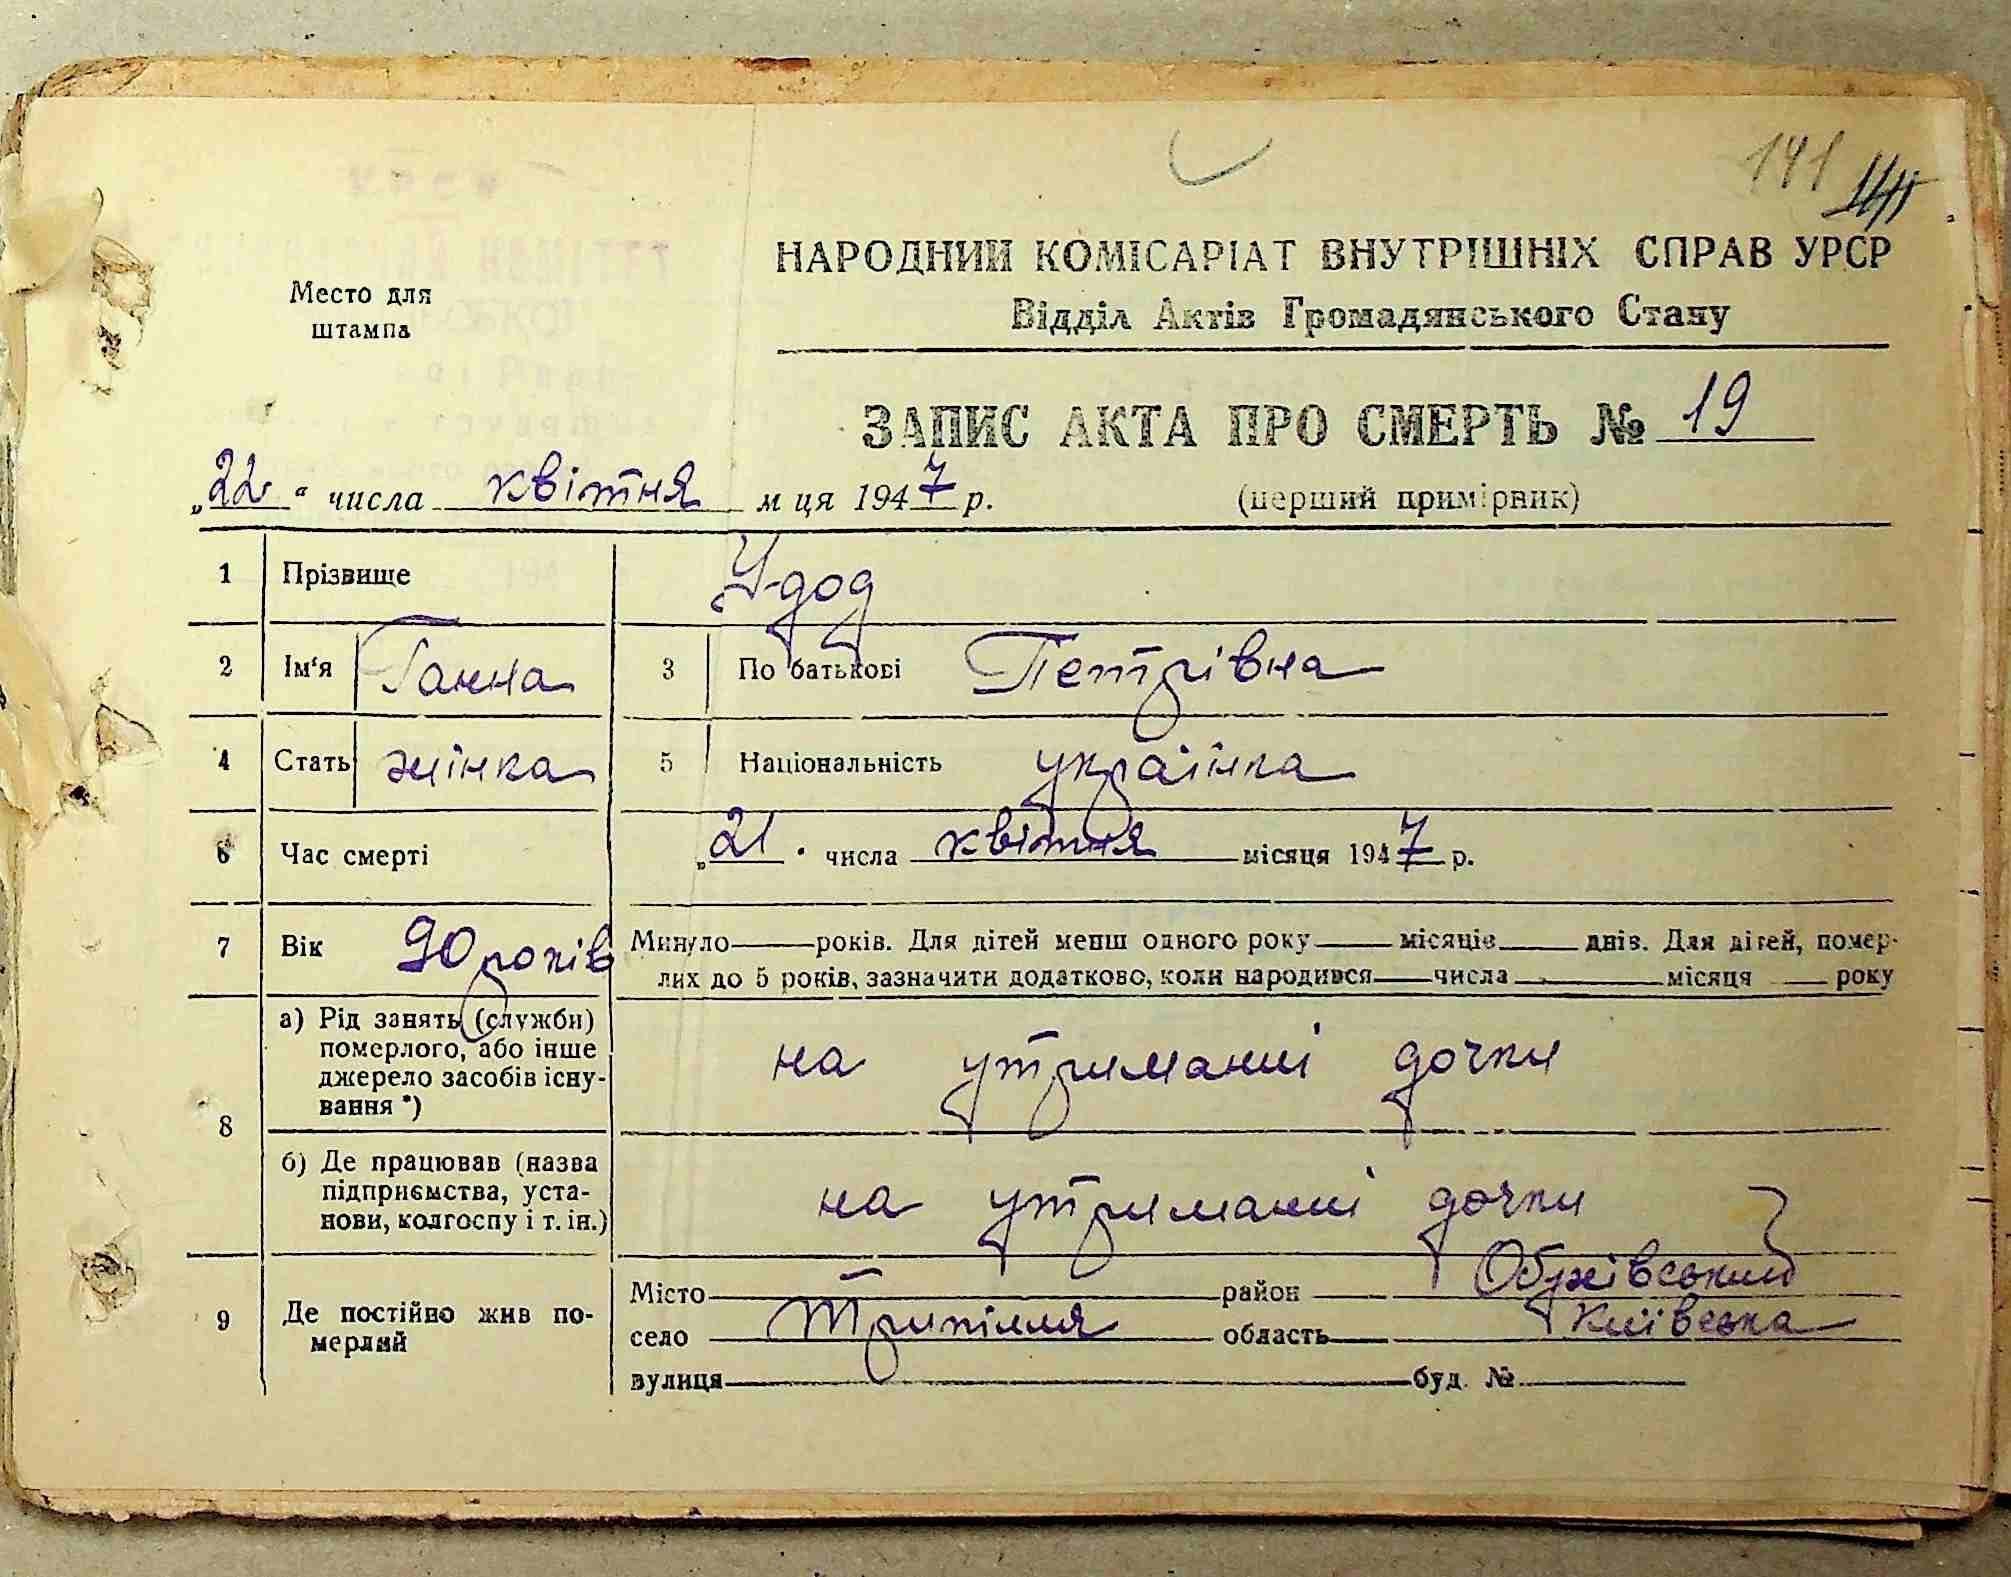 141
НАРОДНИЙ КОМІСАРІАТ ВНУТРІШНІХ СПРАВ УРСР
Відділ Актів Громадянського Стану
Место для
штампа
ЗАПИС АКТА ПРО СМЕРТЬ № 19
„22“ числа квітня м ця 1947 р.
(перший примірник)
1 Прізвище Удод
2 Ім‘я Ганна 3 По батькові Петрівна
4 Стать жінка 5 Національність українка
6 Час смерті „21. числа квітня місяця 1947 р.
7 Вік 90 років Минуло — років. Для дітей менш одного року — місяців — днів. Для дітей, помер-
лих до 5 років, зазначити додатково, коли народився — числа — місяця — року
8
а) Рід занять (служби)
померлого, або інше
джерело засобів існу-
вання *)
на утриманні дочки
б) Де працював (назва
підприємства, уста-
нови, колгоспу і т. ін.)
на утриманні дочки
9 Де постійно жив по-
мерлий
Місто район Обухівський
село Трипілля область Київська
вулиця буд. №